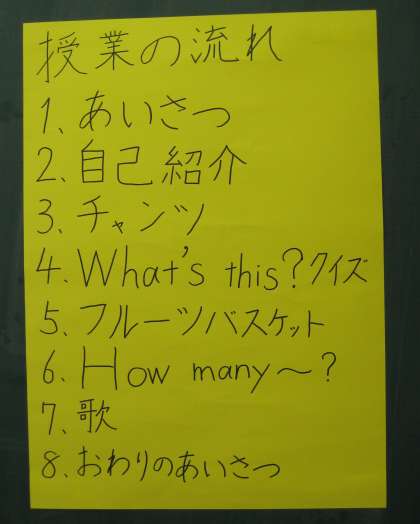 授業の流れ
1、あいさつ
2、自己紹介
3、チャンツ
4、What's this?クイズ
5、フルーツバスケット
6、How many〜?
7、歌
8、おわりのあいさつ